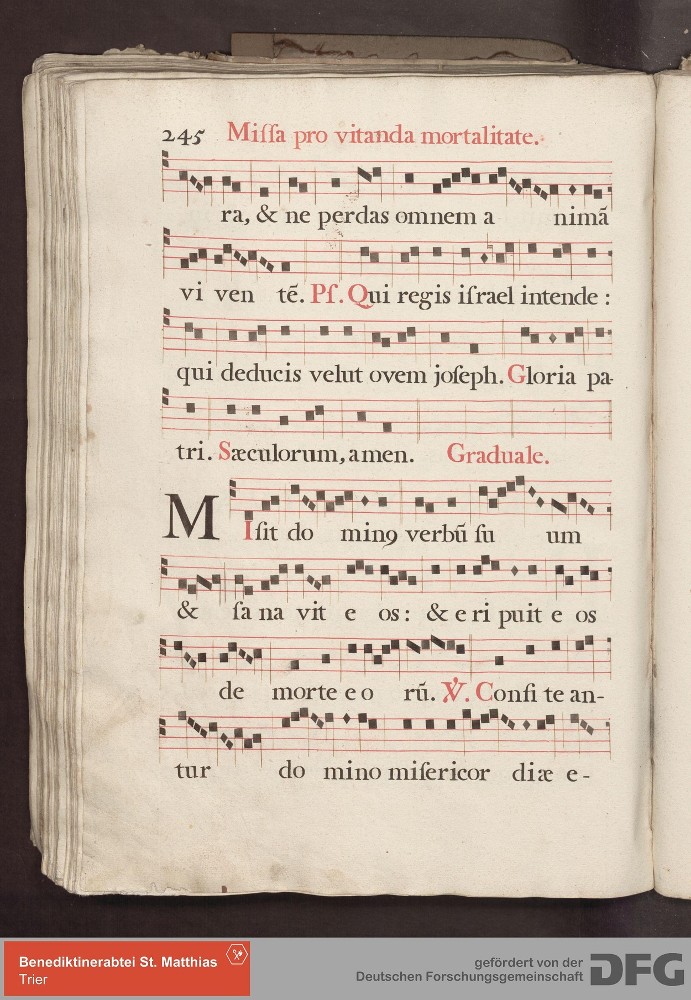 245 Miſſa pro vitanda mortalitate.
ra, & ne perdas omnem a nimã
vi ven tẽ. Pſ. Qui regis iſrael intende :
qui deducis velut ovem joſeph. Gloria pa-
tri. Sæculorum, amen. Graduale.
MIſit do minꝯ verbũ ſu um
& ſa na vit e os: & e ri puit e os
de morte e o rũ. ℣. Confi te an-
tur do mino miſericor diæ e -
Benediktinerabtei St. Matthias
Trier
gefördert von der
Deutschen Forschungsgemeinschaft DFG